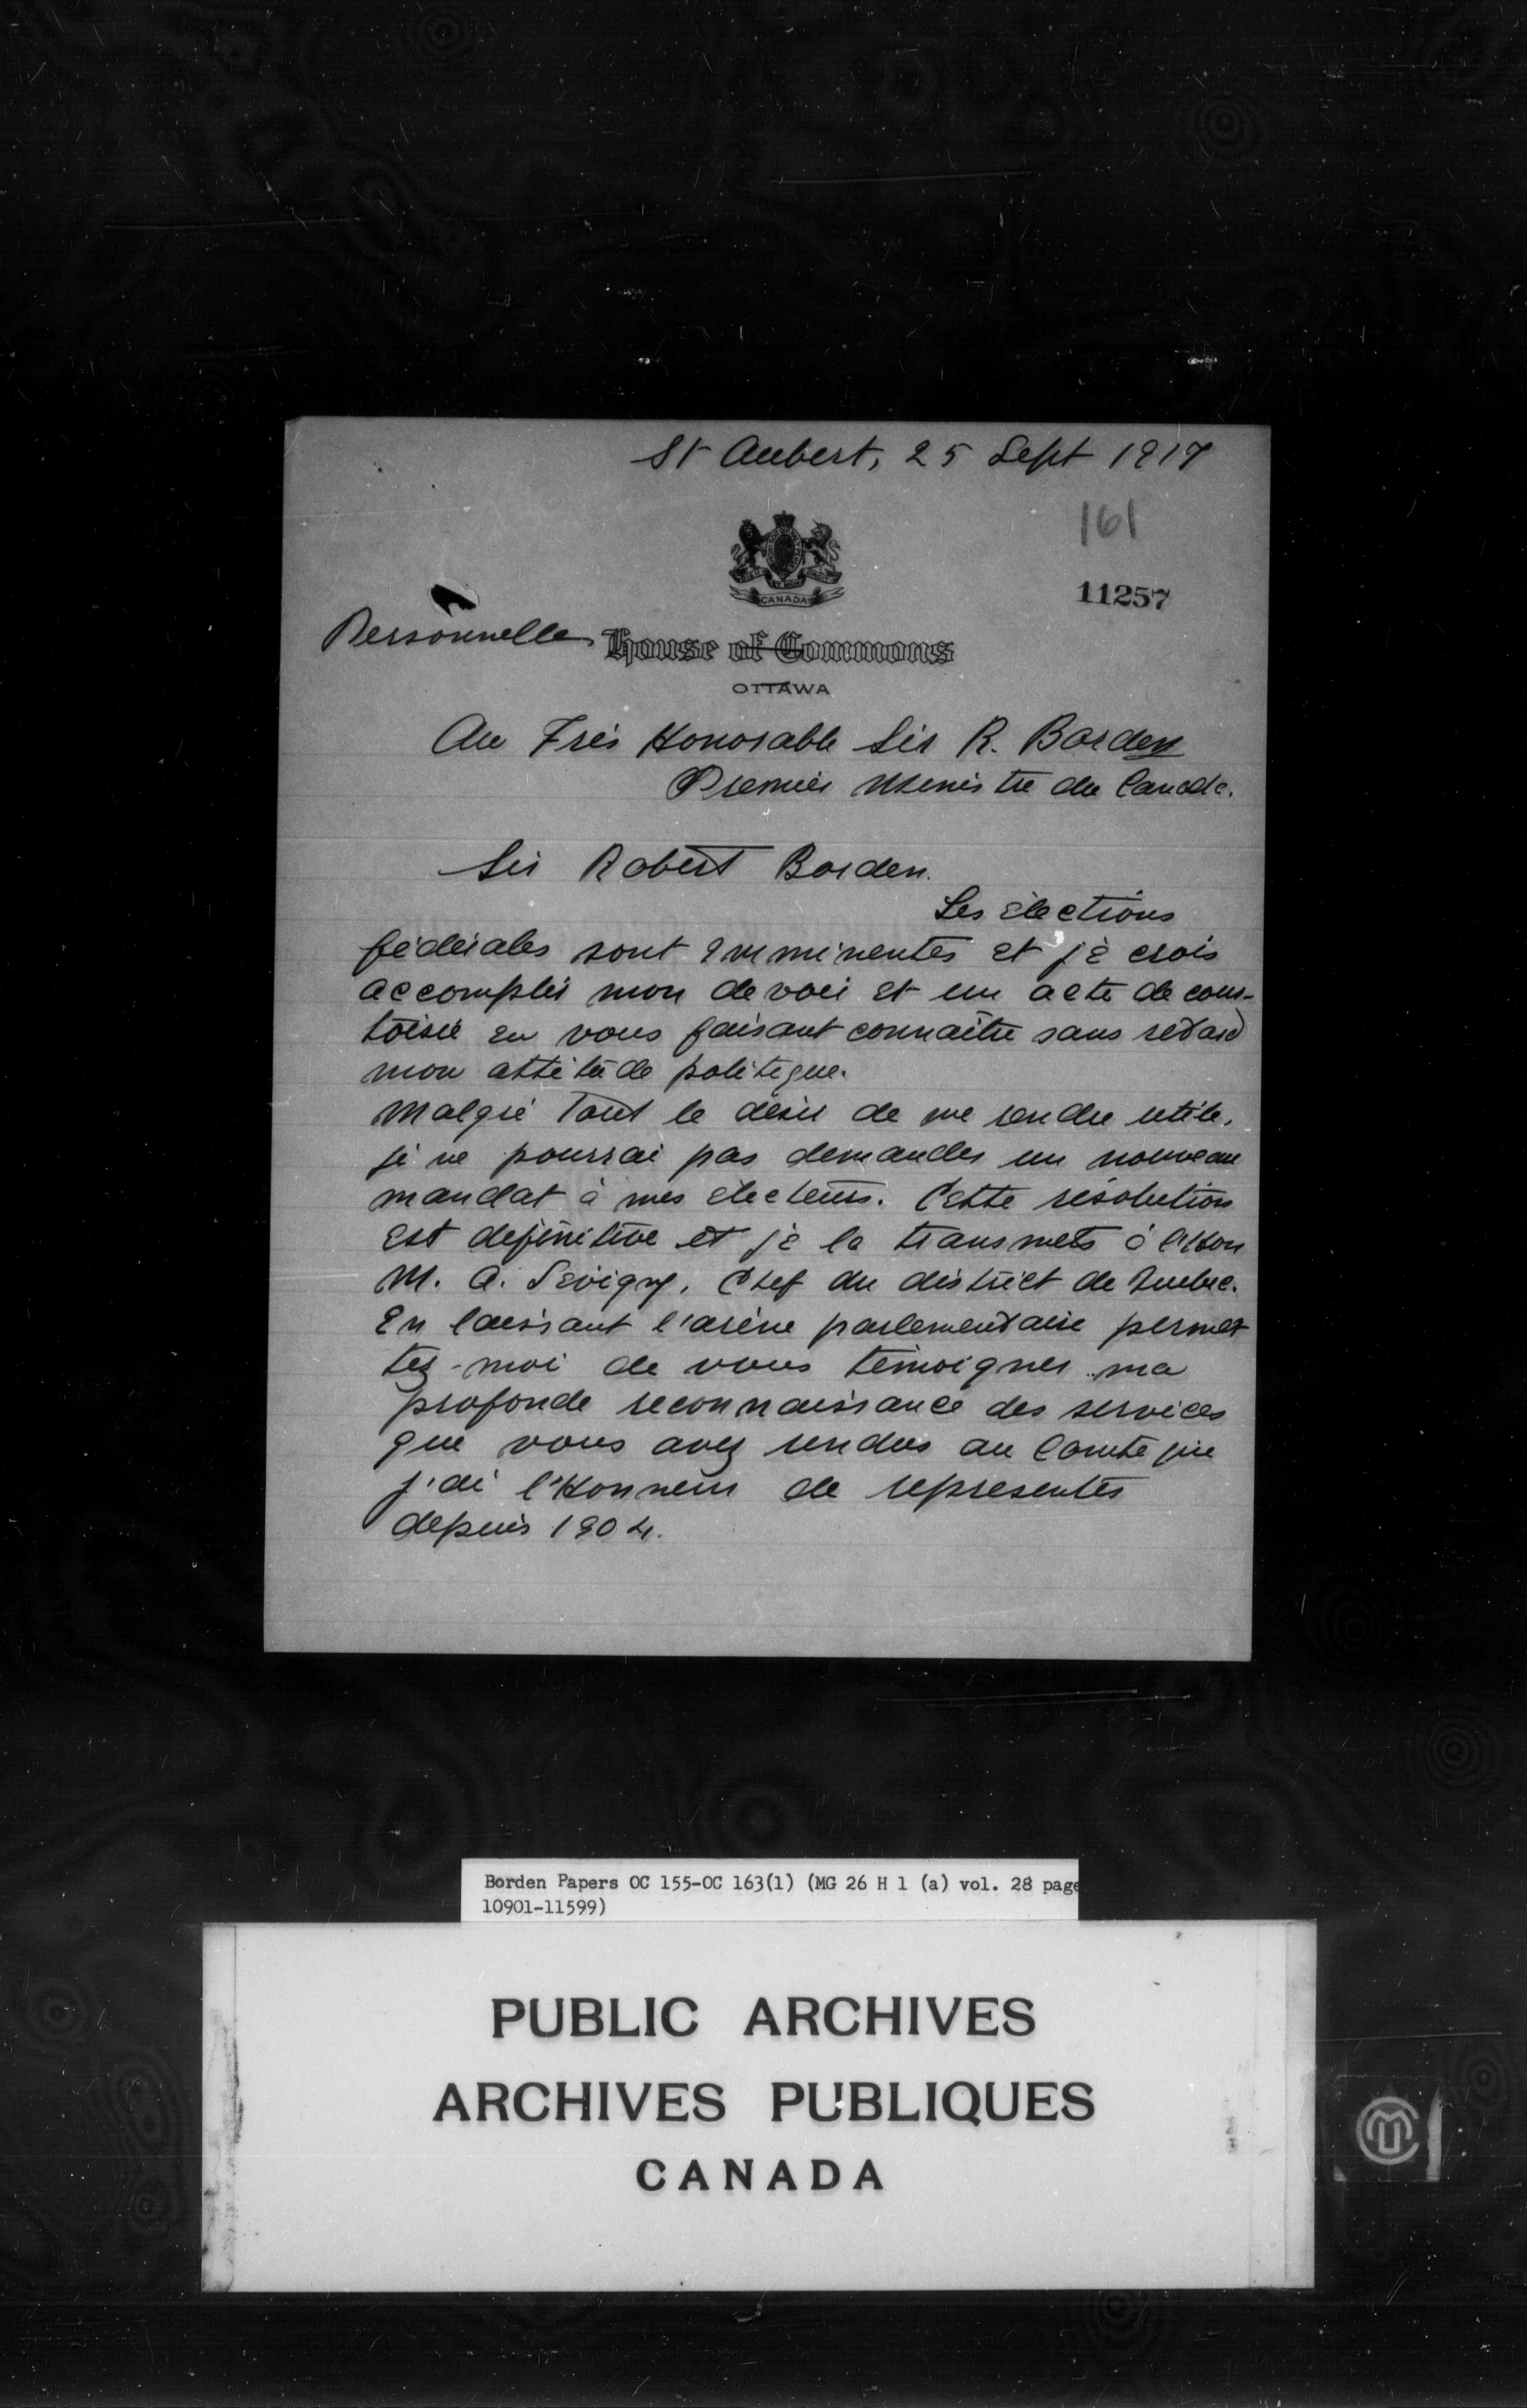 St Aubert, 25 Sept 1917
161
CANADA
11257
Personnelle
House of Commons
OTTAWA
Au Très Honorable Sir R. Borden
Premier Ministre du Canada.
Sir Robert Borden.
Les élections
fédérales sont imminentes et je crois
accomplir mon devoir et un acte de cour-
toisie en vous faisant connaître sans retard
mon attitude politique.
Malgré tout le désir de me rendre utile,
je ne pourrai pas demander un nouveau
mandat à mes électeurs. Cette résolution
est définitive et je la transmets à l'Hon
M. A. Sévigny, Chef du district de Quebec.
En laissant l'arène parlementaire permet
tez-moi de vous témoigner ma
profonde reconnaissance des services
que vous avez rendus au Comté que
j'ai l'Honneur de représenter
depuis 1904.
Borden Papers OC 155-OC 163(1) (MG 26 H 1 (a) vol. 28 page
10901-11599)
PUBLIC ARCHIVES
ARCHIVES PUBLIQUES
CANADA